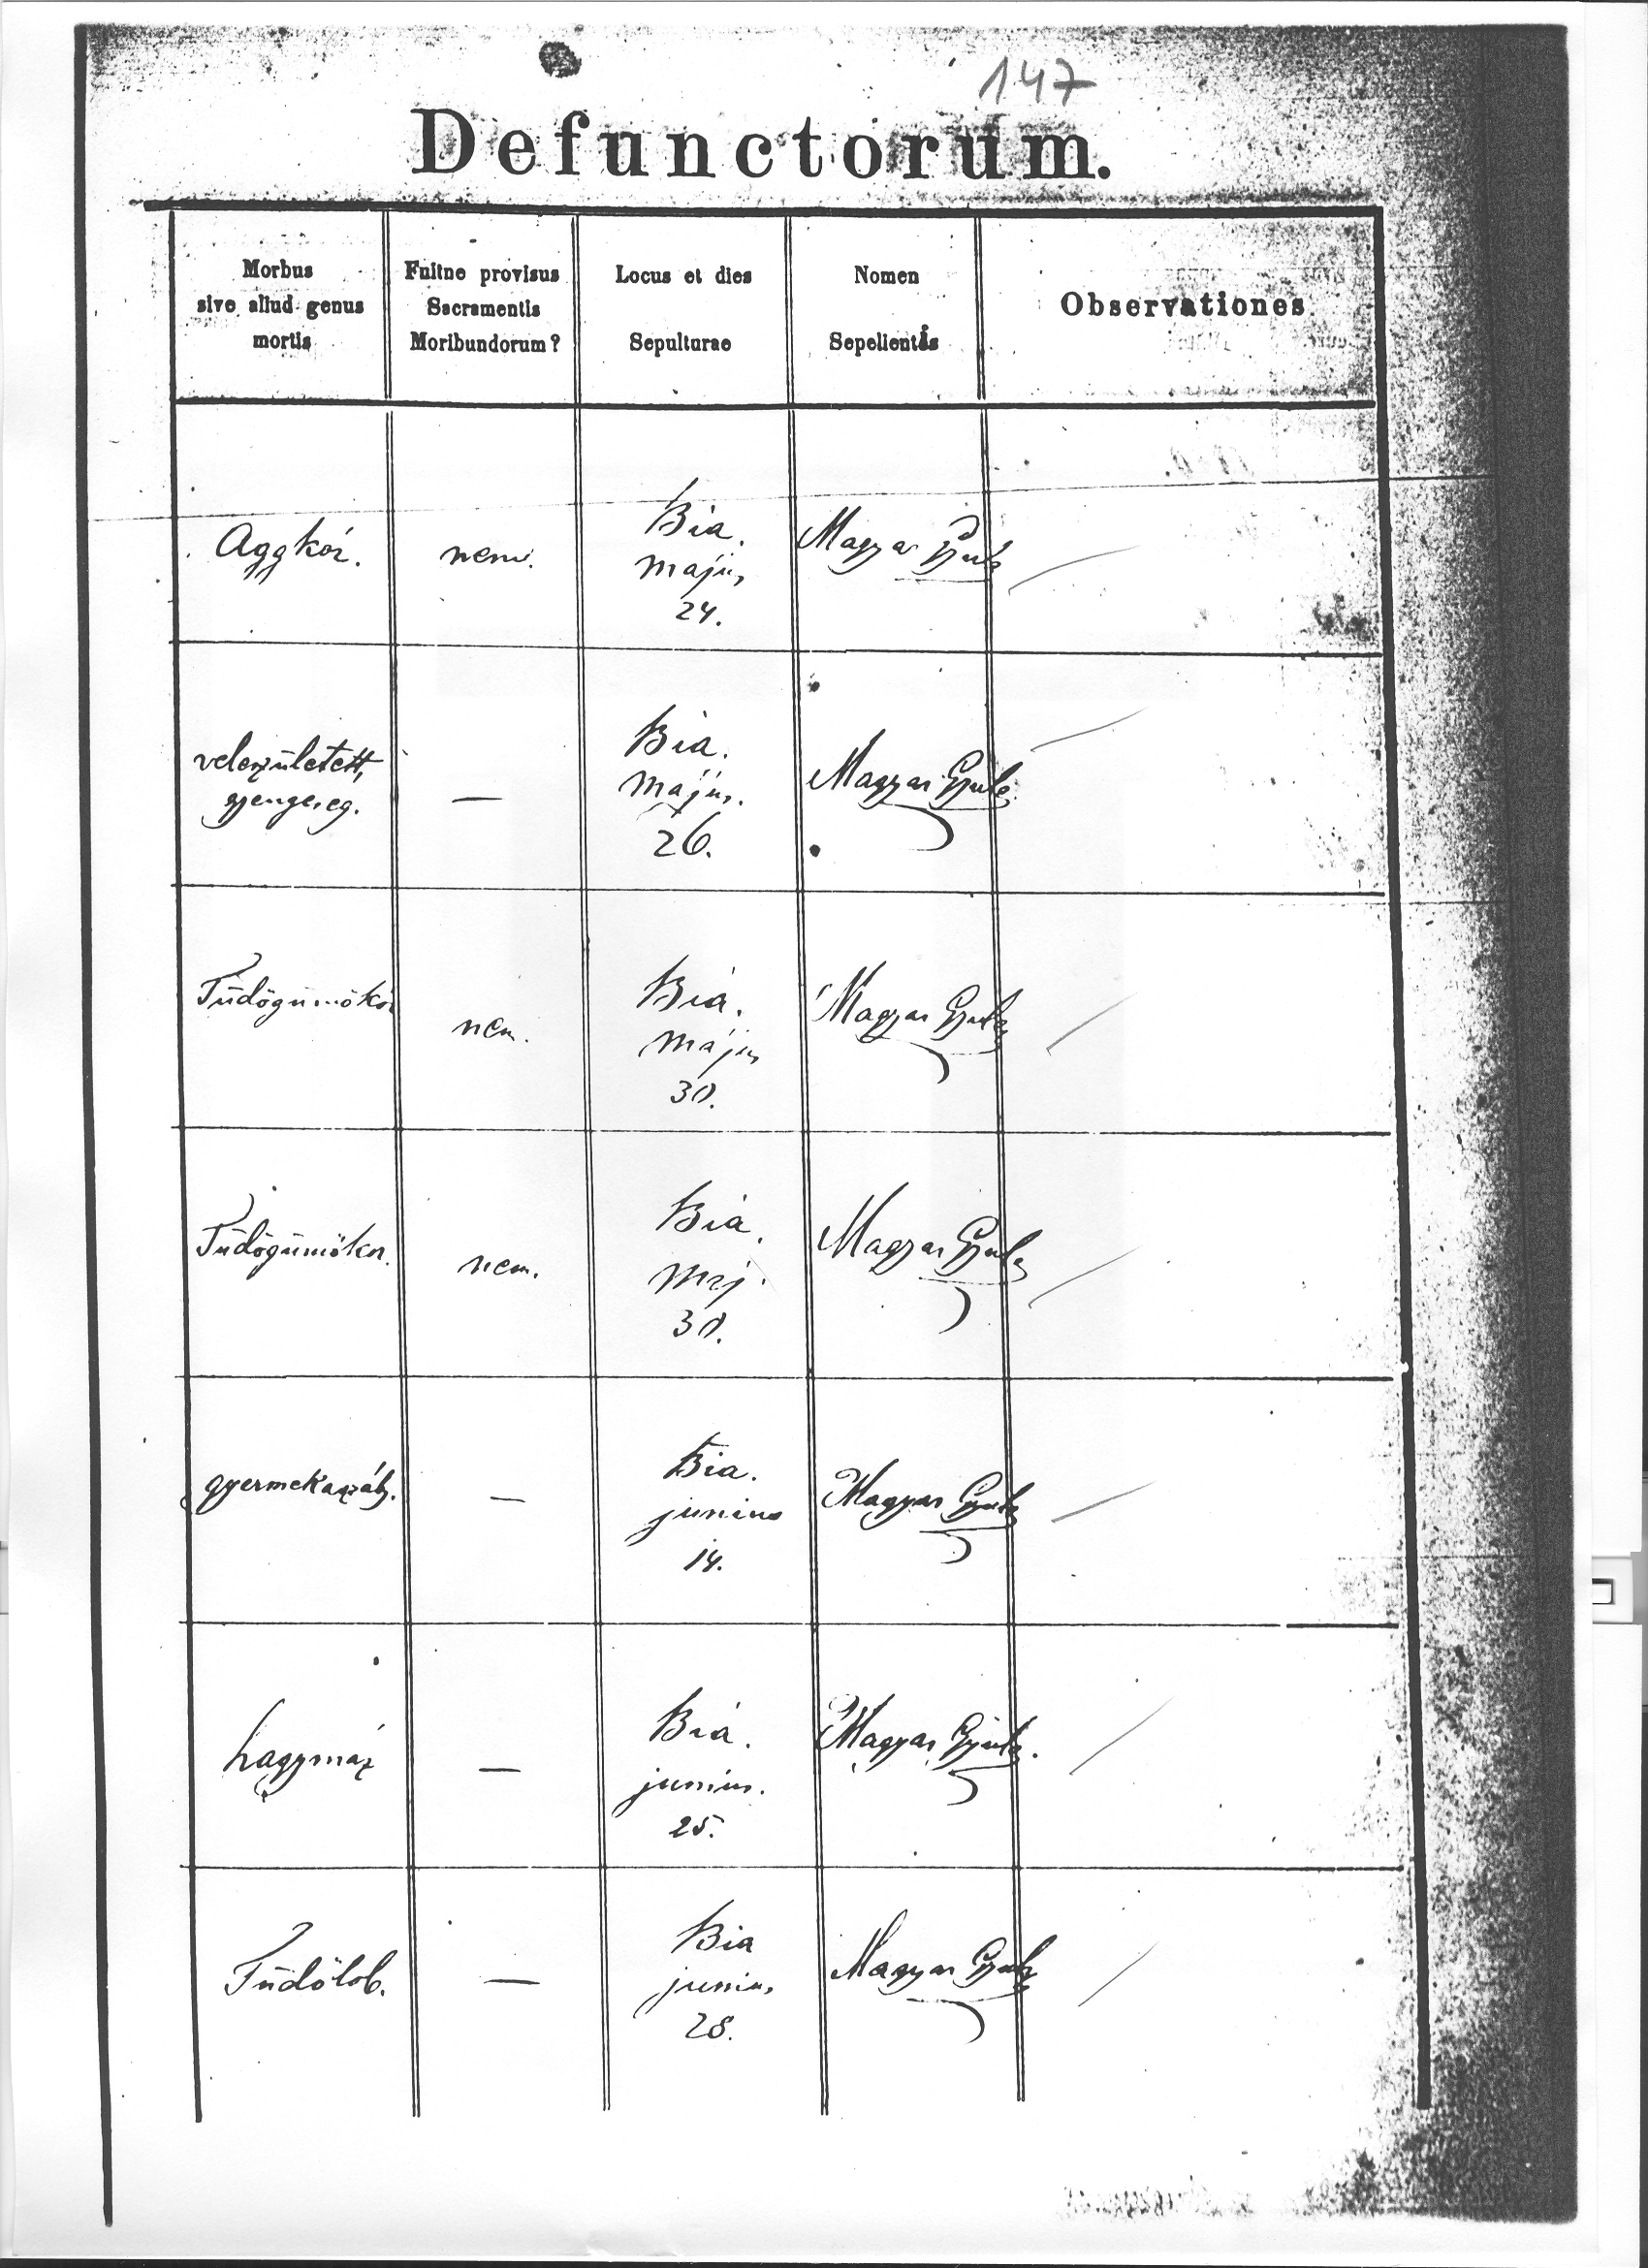 147
Defunctorum.
Morbus
sive aliud genus
mortis
Fuitne provisus
Sacramentis
Moribundorum?
Locus et dies
Sepulturae
Nomen
Sepelientis
Observationes
Aggkór.
nem.
Bia.
május
24.
Magyar Gyula
veleszületett,
gyengeség.
—
Bia.
május.
26.
Magyar Gyula
Tüdőgümőkór
nem.
Bia.
május
30.
Magyar Gyula
Tüdőgümőkór.
nem.
Bia.
máj.
30.
Magyar Gyula
gyermekaszály.
—
Bia.
junius
14.
Magyar Gyula
hagymáz
—
Bia.
junius.
25.
Magyar Gyula.
Tüdőlob.
—
Bia
junius
28.
Magyar Gyula